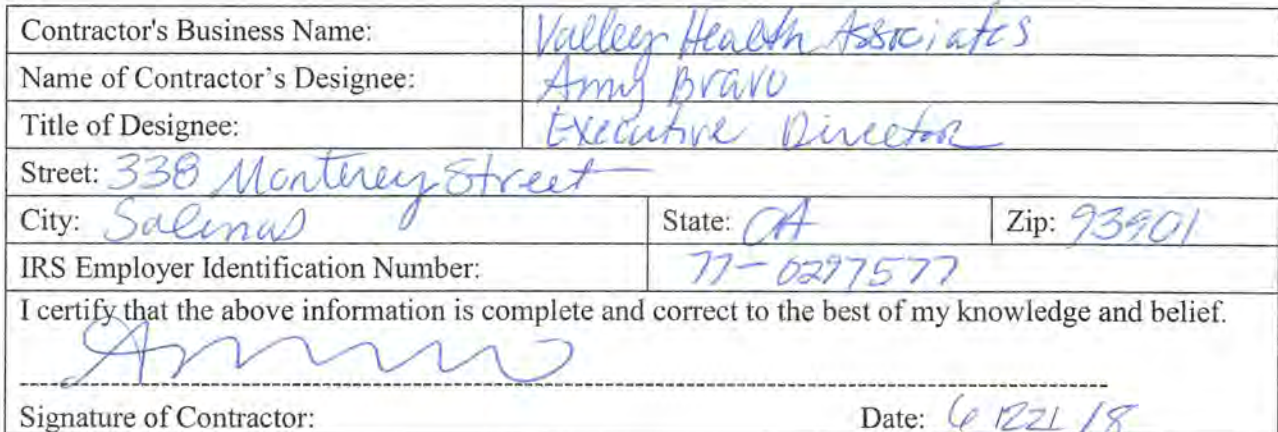 Contractor's Business Name: Valley Health Associates
Name of Contractor's Designee: Amy Bravo
Title of Designee: Executive Director
Street: 338 Monterey Street
City: Salinas State: CA Zip: 93901
IRS Employer Identification Number: 77-0297577
I certify that the above information is complete and correct to the best of my knowledge and belief.
Signature of Contractor: Date: